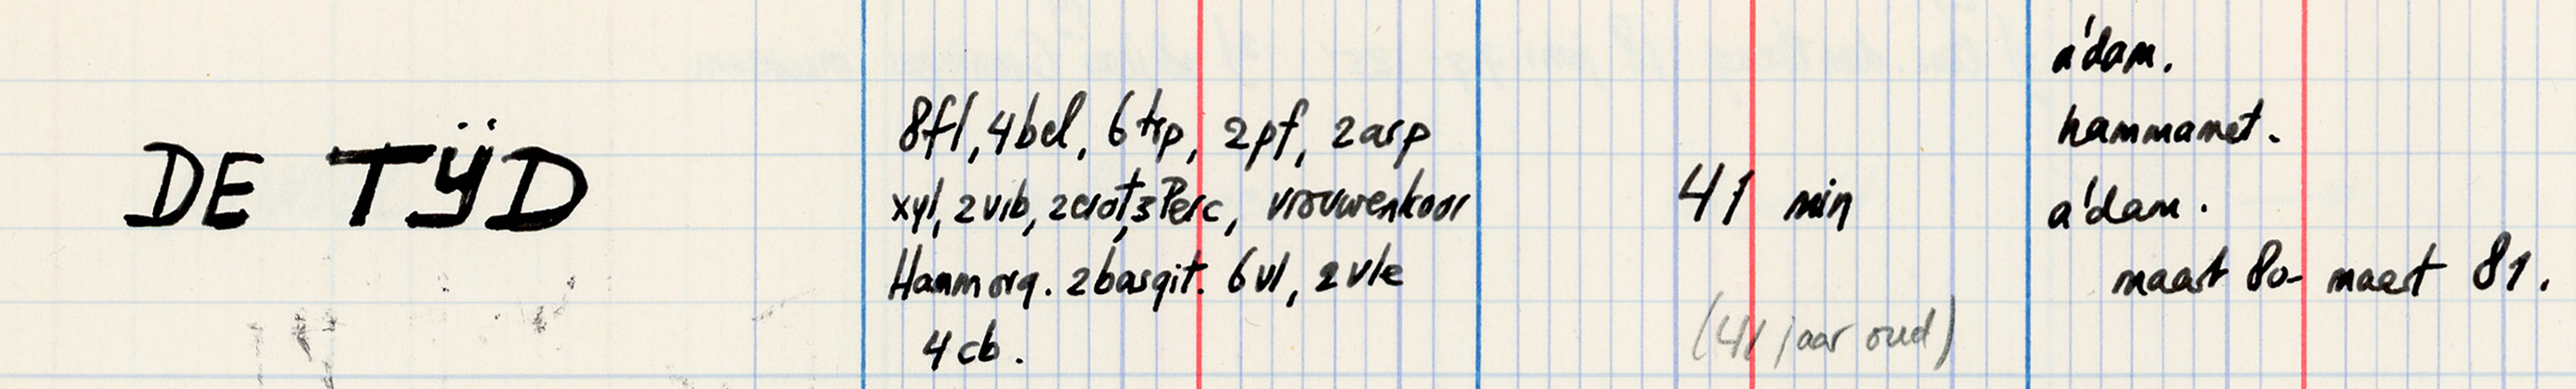 DE TIJD
8fl, 4bcl, 6trp, 2pf, 2arp
xyl, 2vib, 2crot, 3Perc, vrouwenkoor
Hammorg. 2basgit. 6vl, 2vle
4cb.
41 min
(41 jaar oud)
a'dam.
hammamet.
a'dam.
maart 80- maart 81.